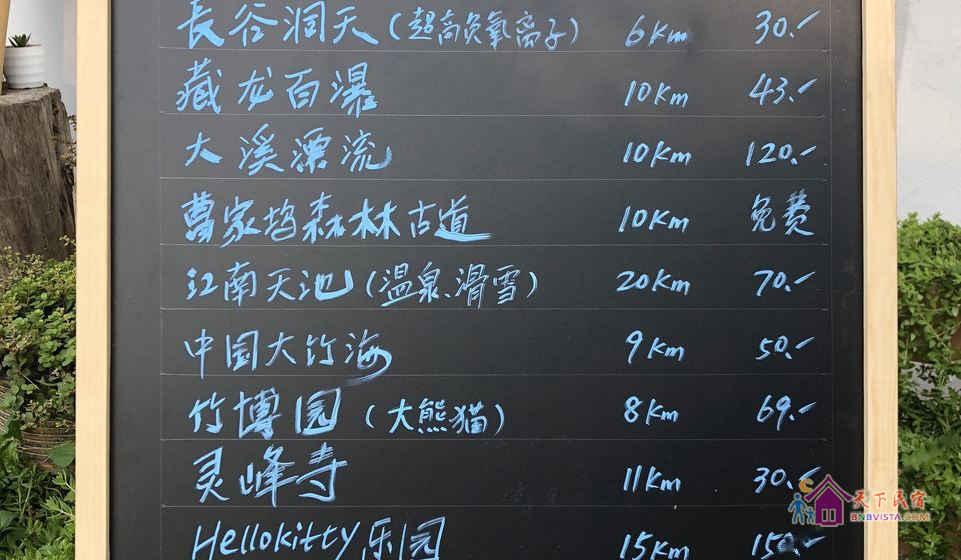 長谷洞天(超高负氧离子) 6Km 30.-
藏龙百瀑 10Km 43.-
大溪漂流 10Km 120.-
曹家坞森林古道 10Km 免费
江南天池(温泉、滑雪) 20Km 70.-
中国大竹海 9Km 50.-
竹博园(大熊猫) 8Km 69.-
灵峰寺 11Km 30.-
Hellokitty乐园 15Km 150.-
天下民宿
BNBVISTA.COM